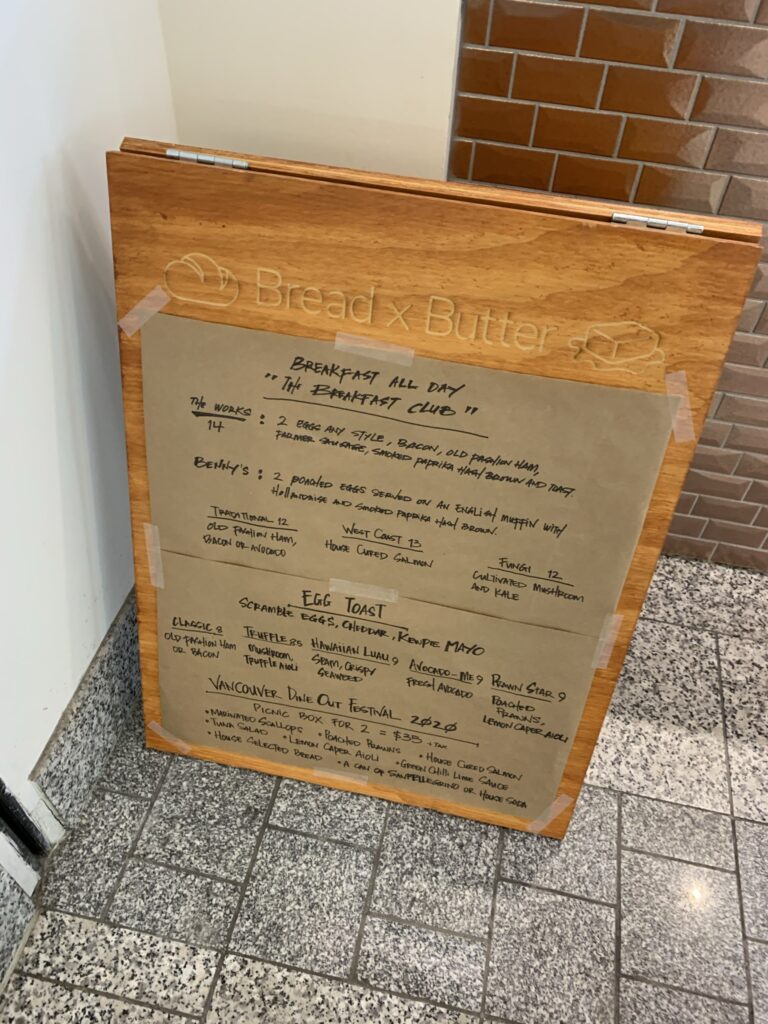 Bread x Butter
BREAKFAST ALL DAY
"THE BREAKFAST CLUB"
THE WORKS : 2 EGGS ANY STYLE, BACON, OLD FASHION HAM,
14 FARMER SAUSAGE, SMOKED PAPRIKA HASH BROWN AND TOAST
BENNY'S : 2 POACHED EGGS SERVED ON AN ENGLISH MUFFIN WITH
HOLLANDAISE AND SMOKED PAPRIKA HASH BROWN.
TRADITIONAL 12
OLD FASHION HAM,
BACON OR AVOCADO
WEST COAST 13
HOUSE CURED SALMON
FUNGI 12
CULTIVATED MUSHROOM
AND KALE
EGG TOAST
SCRAMBLE EGGS, CHEDDAR, KEWPIE MAYO
CLASSIC 8
OLD FASHION HAM
OR BACON
TRUFFLE 8.5
MUSHROOM,
TRUFFLE AIOLI
HAWAIIAN LUAU 9
SPAM, CRISPY
SEAWEED
AVOCADO-ME 9
FRESH AVOCADO
PRAWN STAR 9
POACHED
PRAWNS,
LEMON CAPER AIOLI
VANCOUVER DINE OUT FESTIVAL 2020
PICNIC BOX FOR 2 = $35 + TAX
• MARINATED SCALLOPS • POACHED PRAWNS • HOUSE CURED SALMON
• TUNA SALAD • LEMON CAPER AIOLI • GREEN CHILI LIME SAUCE
• HOUSE SELECTED BREAD • A CAN OF SANPELLEGRINO OR HOUSE SODA